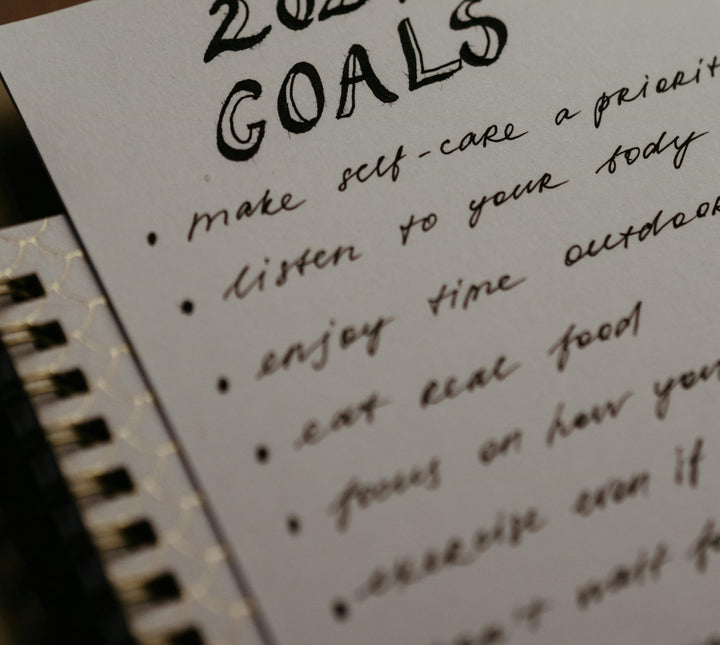 GOALS
• make self-care a priorit
• listen to your body
• enjoy time outdoor
• eat real food
• focus on how you
• exercise even if
wait